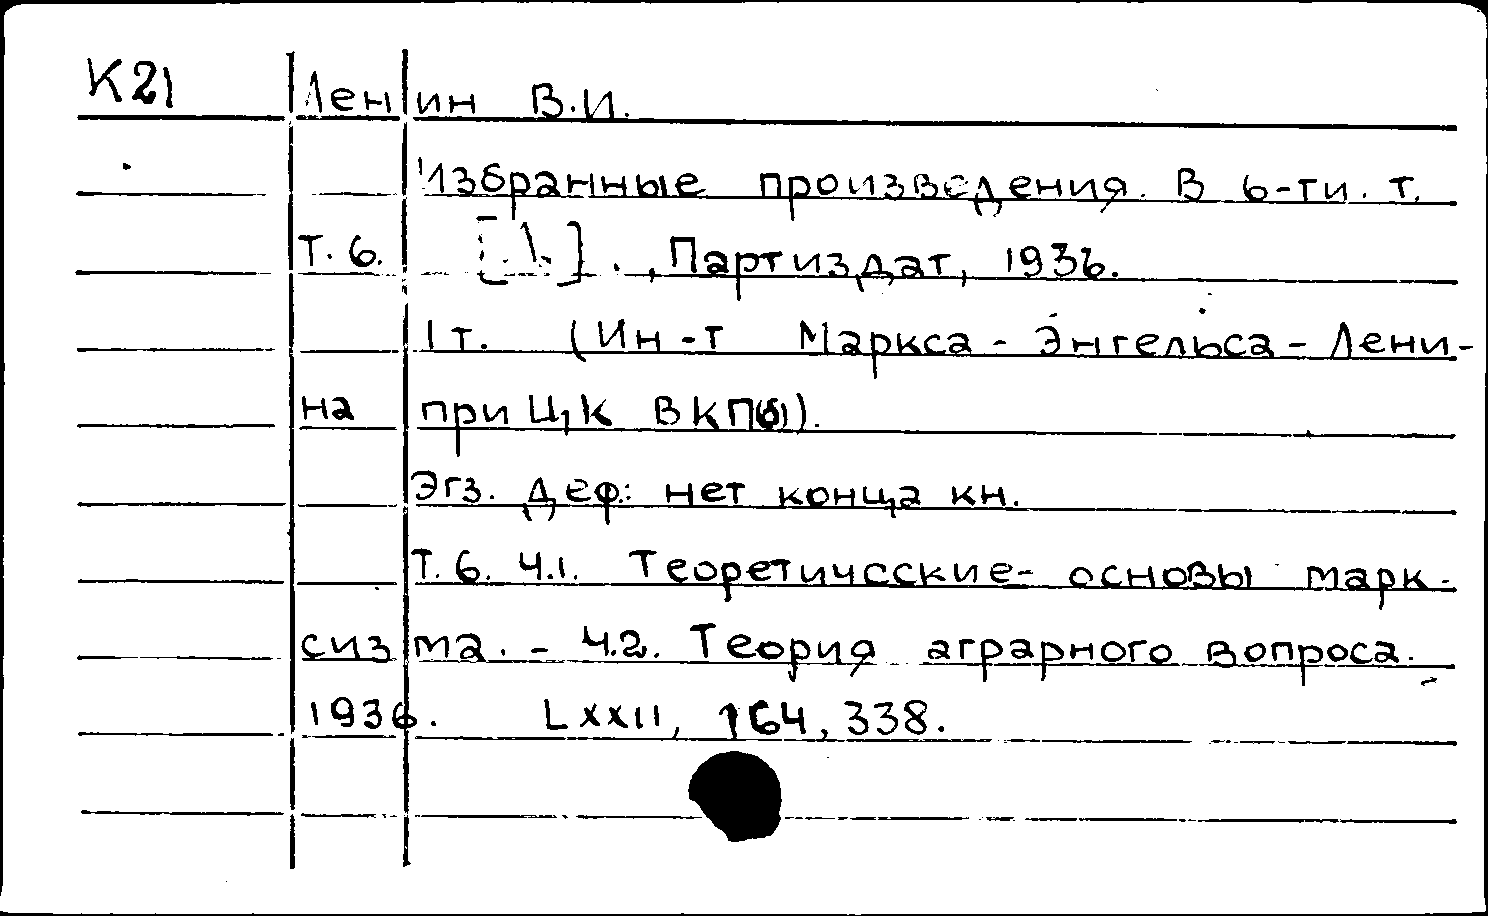 К21 Ленин В.И.
Избранные произведения. В 6-ти. т.
Т. 6. [ ] . , Партиздат, 1936.
1 т. (Ин-т Маркса - Энгельса - Лени-
на при ЦК ВКП(б)).
Экз. деф.: нет конца кн.
Т. 6. Ч.1. Теоретические- основы марк-
сизма. - Ч.2. Теория аграрного вопроса.
1936. LXXII, 164, 338.